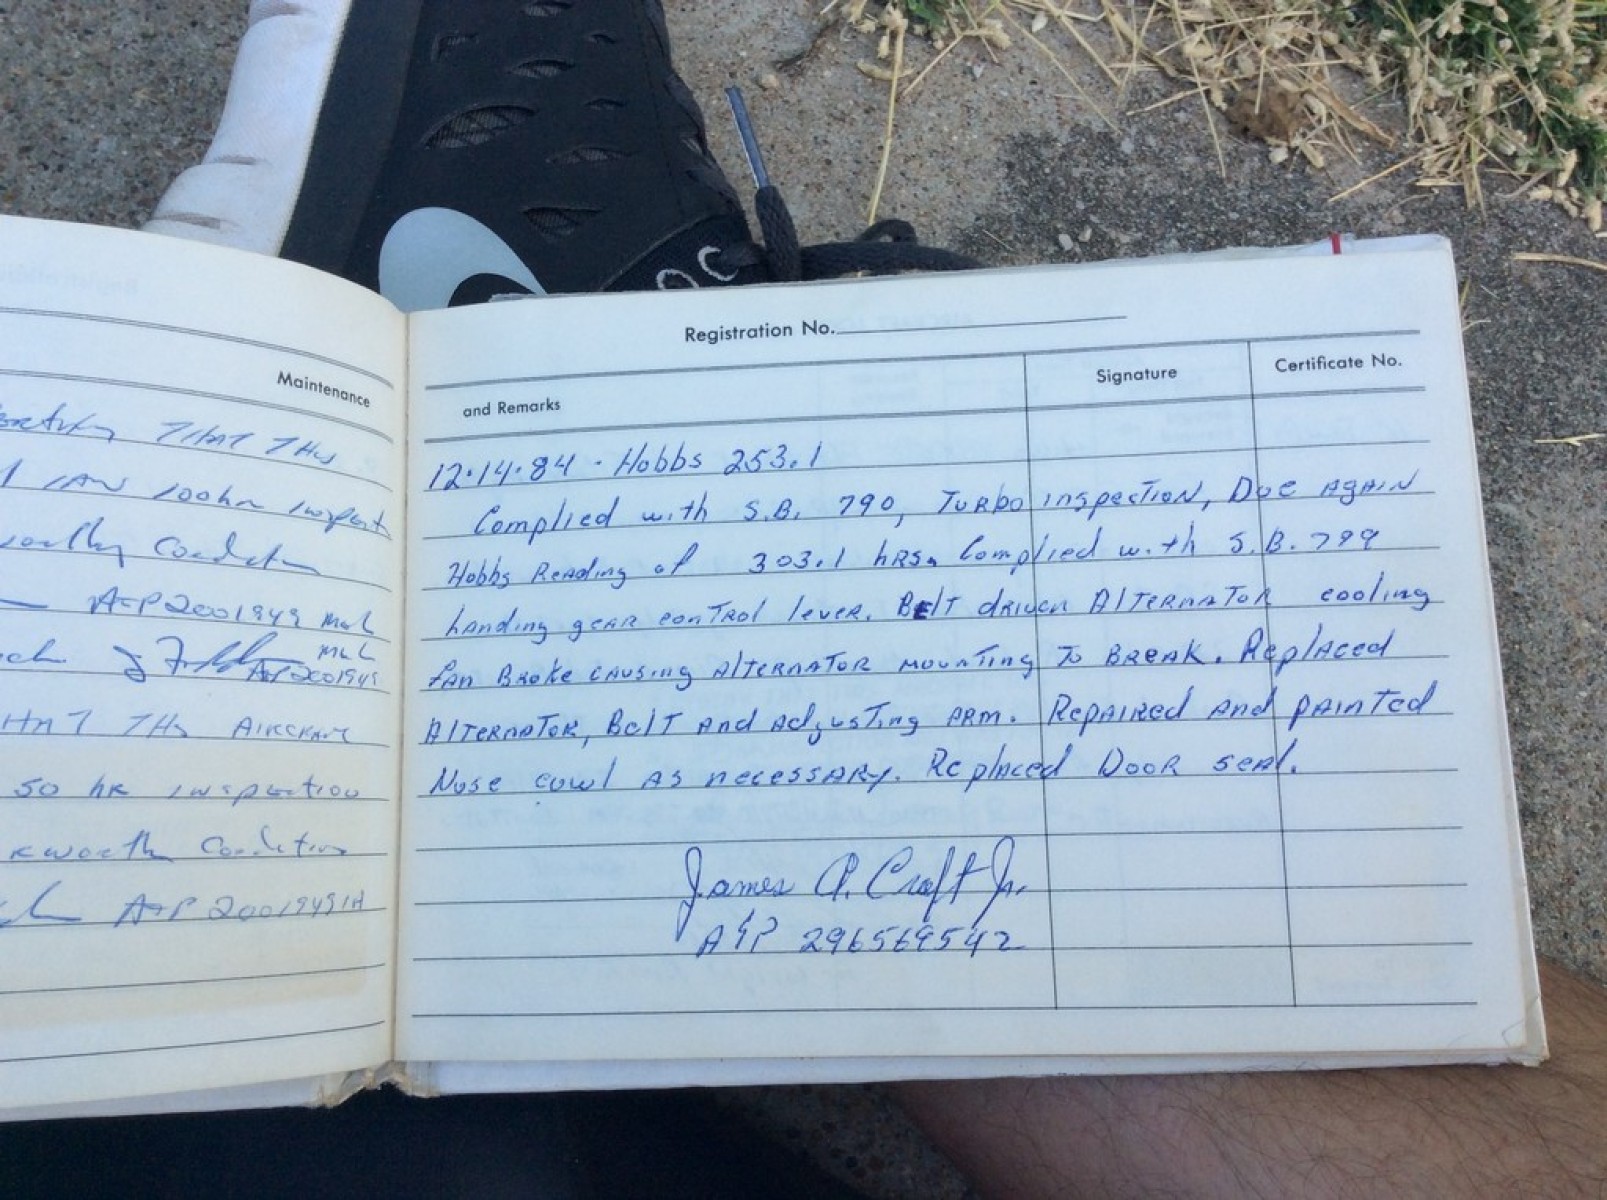 Maintenance
THAT THIS
100hr inspect
Condition
A+P 2001949
THAT THIS AIRCRAFT
50 hr inspection
Condition
A+P 2001949 IA
Registration No.
and Remarks
Signature
Certificate No.
12.14.84 - Hobbs 253.1
Complied with S.B. 790, Turbo inspection, Due AGAIN
Hobbs Reading of 303.1 hrs. Complied with S.B. 799
Landing gear control lever. Belt driven Alternator cooling
fan Broke causing Alternator mounting To Break. Replaced
Alternator, Belt and adjusting arm. Repaired and painted
Nose cowl as necessary. Replaced Door seal.
James A. Craft Jr.
A&P 296569542